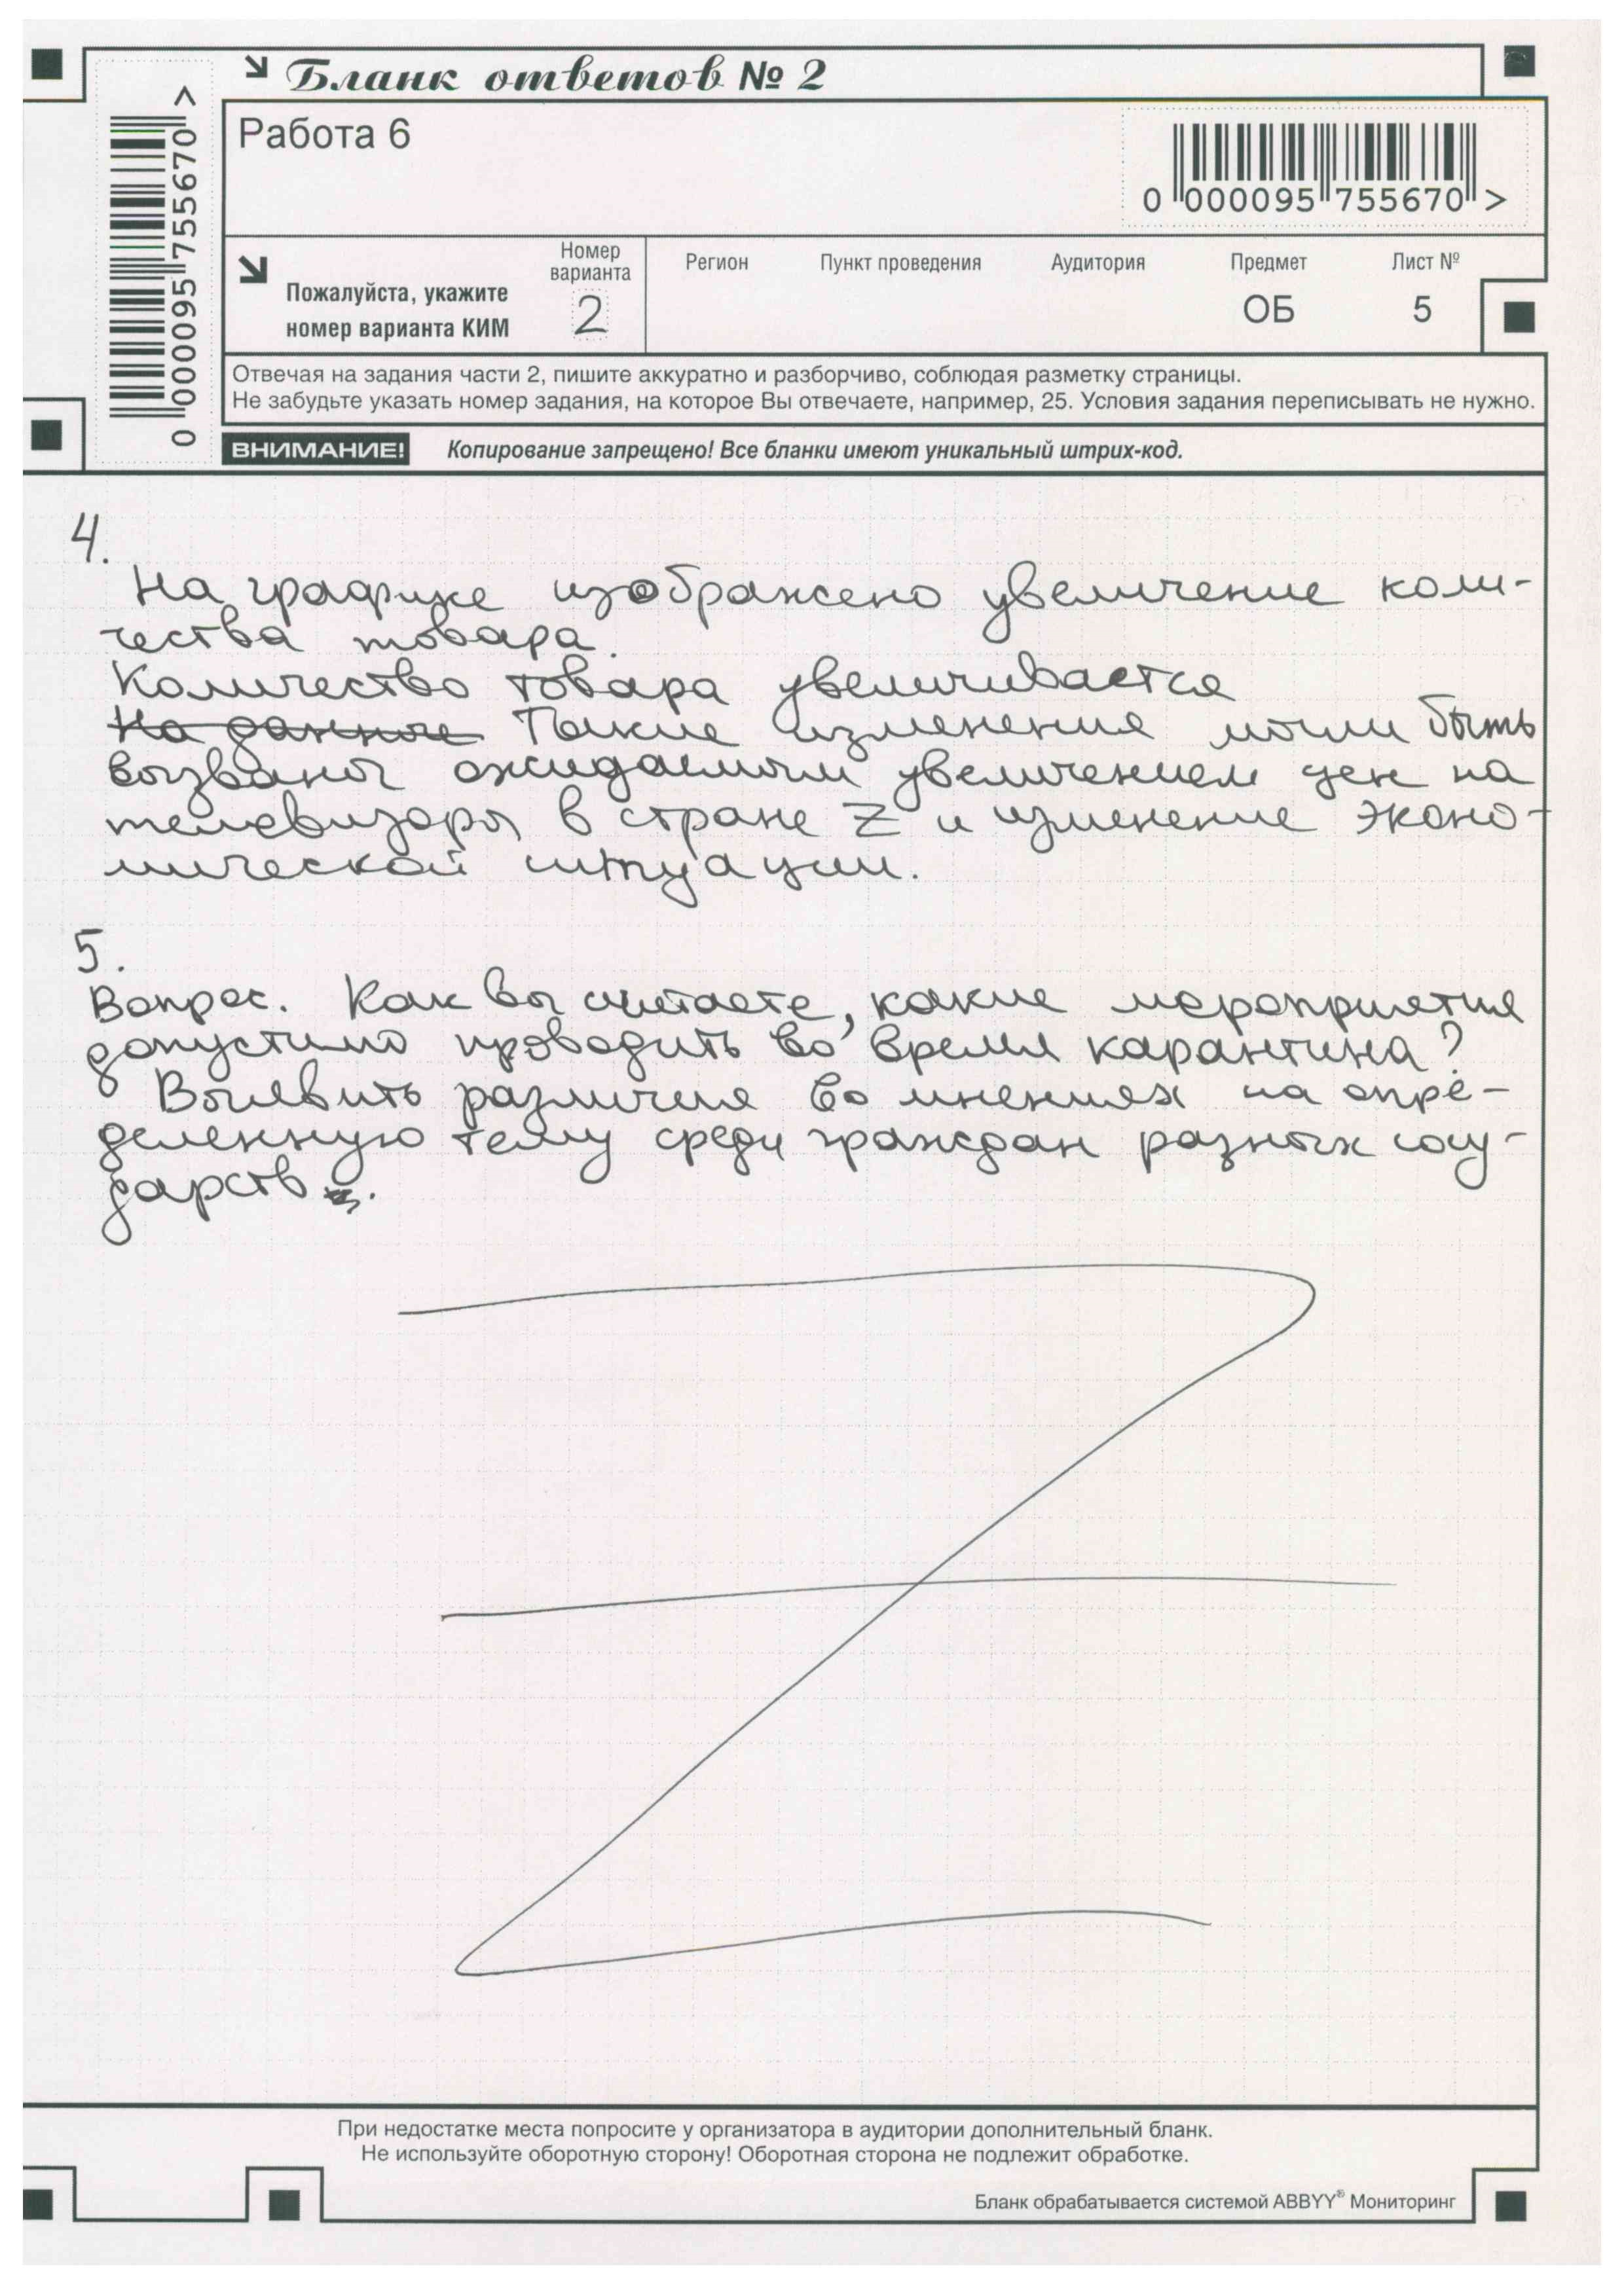 Бланк ответов № 2
Работа 6
0 000095 755670 >
0 000095 755670 >
Пожалуйста, укажите
номер варианта КИМ
Номер
варианта
2
Регион
Пункт проведения
Аудитория
Предмет
ОБ
Лист №
5
Отвечая на задания части 2, пишите аккуратно и разборчиво, соблюдая разметку страницы.
Не забудьте указать номер задания, на которое Вы отвечаете, например, 25. Условия задания переписывать не нужно.
ВНИМАНИЕ!
Копирование запрещено! Все бланки имеют уникальный штрих-код.
4.
На графике изображено увеличение коли-
чества товара.
Количество товара увеличивается
На данное Такие изменения могли быть
вызваны ожидаемым увеличением цен на
телевизоры в стране Z и изменение эконо-
мической ситуации.
5.
Вопрос. Как вы считаете, какие мероприятия
допустимо проводить во время карантина?
Выявить различия во мнениях на опре-
деленную тему среди граждан разных госу-
дарств.
При недостатке места попросите у организатора в аудитории дополнительный бланк.
Не используйте оборотную сторону! Оборотная сторона не подлежит обработке.
Бланк обрабатывается системой ABBYY® Мониторинг